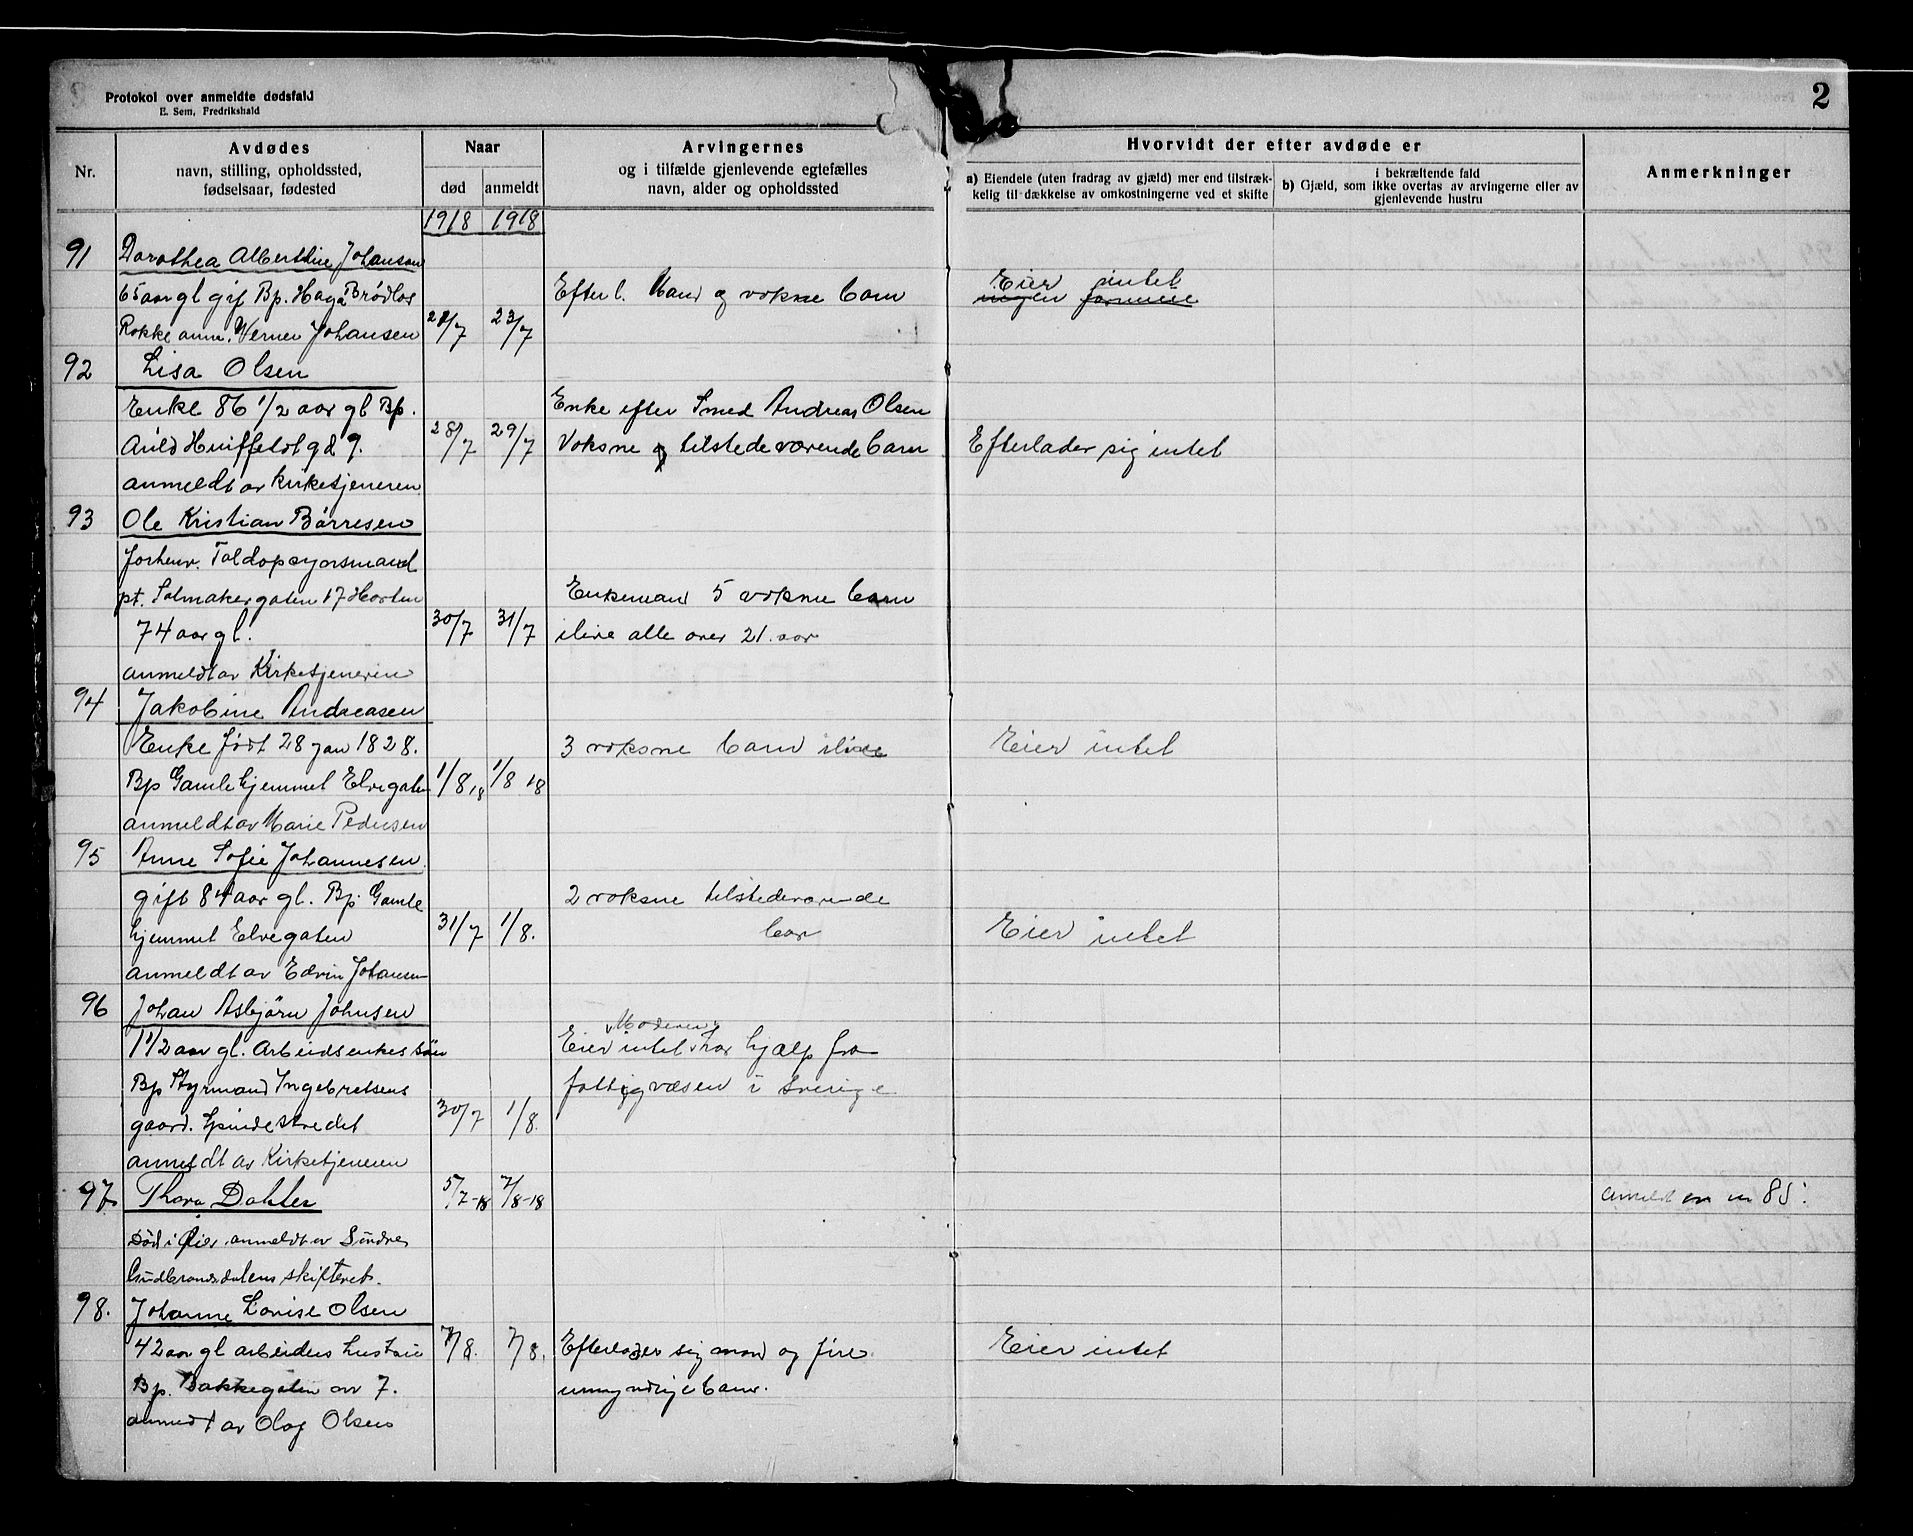 Protokol over anmeldte dødsfald
E. Sem, Fredrikshald
2
Nr.
Avdødes
navn, stilling, opholdssted,
fødselsaar, fødested
Naar
død
anmeldt
Arvingernes
og i tilfælde gjenlevende egtefælles
navn, alder og opholdssted
Hvorvidt der efter avdøde er
a) Eiendele (uten fradrag av gjæld) mer end tilstræk-
kelig til dækkelse av omkostningerne ved et skifte
i bekræftende fald
b) Gjæld, som ikke overtas av arvingerne eller av
gjenlevende hustru
Anmerkninger
1918 1918
91 Dorothea Alberthine Johansen
65 aar gl gift Bp. Haga Brødløs Efterl. Mand og voksne barn Eier intet
Rokke anm. Verner Johansen 21/7 23/7
92 Lisa Olsen
Enke 86 1/2 aar gl Bp. Enke efter Smed Andreas Olsen
Arild Huitfeldt gd 9. 28/7 29/7 Voksne og tilstedeværende barn Efterlader sig intet
anmeldt av kirketjeneren
93 Ole Kristian Børresen
Forhenv. Toldopsynsmand
pt. Salmakergaten 17 Horten Enkemand 5 voksne barn
74 aar gl. 30/7 31/7 ilive alle over 21. aar
anmeldt av Kirketjeneren
94 Jakobine Andreasen
Enke født 28 jan 1828. 3 voksne barn ilive Eier intet
Bp Gamlehjemmet Elvegaten 1/8 18 1/8 18
anmeldt av Marie Pedersen
95 Anne Sofie Johannesen
gift 84 aar gl. Bp. Gamle 2 voksne tilstedeværende
hjemmet Elvegaten 31/7 1/8. barn Eier intet
anmeldt av Edvin Johansen
96 Johan Asbjørn Johnsen
Moderen
1 1/2 aar gl. Arbeidsenkes søn Eier intet har hjælp fra
Bp Styrmand Ingebretsens fattigvæsen i Sverige
gaard. Spindestredet 30/7 1/8.
anmeldt av Kirketjeneren
97. Thora Dahler 5/7-18 7/8-18 anmeldt nr 85.
Død i Øier anmeldt av Søndre
Gudbrandsdalens skifteret.
98. Johanne Lovise Olsen
42 aar gl arbeiders hustru 7/8. 7/8. Efterlader sig mand og fire Eier intet
Bp. Bakkegaten nr 7. umyndige barn.
anmeldt av Olaf Olsen